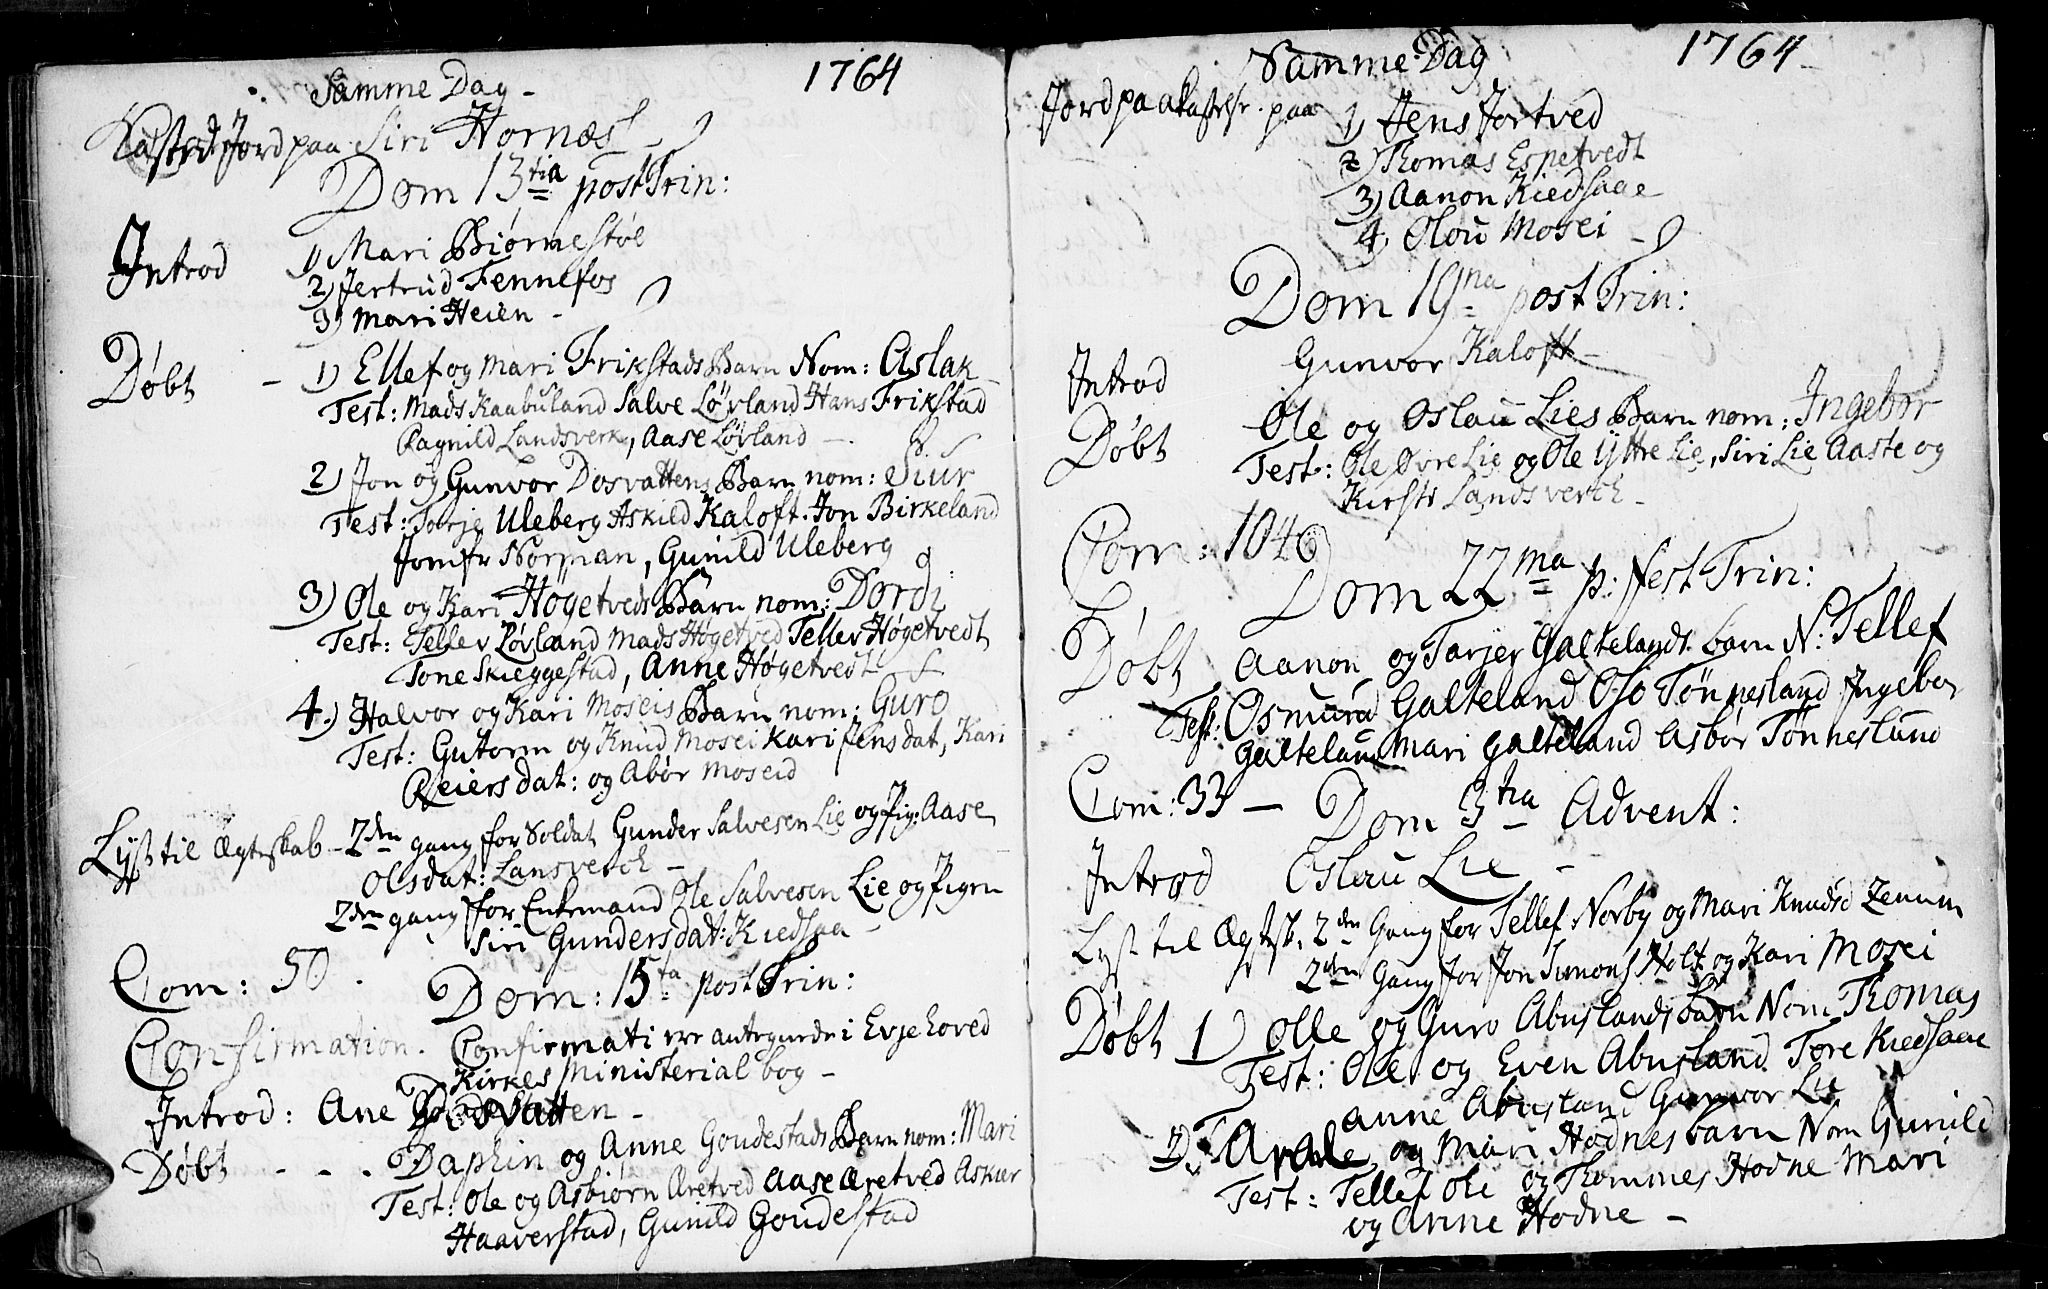 Samme Dag - 1764
Kasted Jord paa Siri Hornæs
Dom 13tia post Trin:
Introd 1) Mari Biørnestøl
2) Jertrud Fennefos
3) Mari Heien -
Døbt - 1) Ellef og Mari Frikstads Barn Nom: Aslak
Test: Mads Kaabuland Salve Løvland Hans Frikstad
Ragnild Landsverk, Aase Løvland -
2) Jon og Gunvor Dosvattens Barn nom: Siur
Test: Torje Uleberg Askild Kaloft. Jon Birkeland
Jomfr Norman, Gunild Uleberg
3) Ole og Kari Høgetveds Barn nom: Dordi
Test: Tellev Løvland Mads Høgetved Tellev Høgetvedt
Tone Skieggestad, Anne Høgetvedt
4.) Halvor og Kari Moseis Barn nom: Guro
Test: Gutorm og Knud Mosei Kari Jensdat, Kari
Reiersdat: og Abør Moseid
Lyst til Ægteskab - 2den gang for Soldat Gunder Salvesen Lie og Pig: Aase
Olsdat: Lansverch -
2den gang for Enkemand Ole Salvesen Lie og Pigen
Siri Gundersdat: Kiedsaa -
Com: 50.
Dom: 15ta post Trin:
Confirmation. Confirmati ere antegnede i Evje hoved
Kirkes Ministerial bog -
Introd: Ane Dosvatten -
Døbt - - . Daphin og Anne Goudestads Barn nom: Mari
Test: Ole og Asbiørn Æretved Aase Æretved Askier
Haaverstad, Gunild Goudestad
Samme Dag 1764
Jord paakastelse paa 1) Jens Jortved
2) Thomas Espetvedt
3) Aanon Kiedsaae
4) Olou Mosei -
Dom 19na post Trin:
Introd Gunvor Kaloft -
Døbt Ole og Oslau Lies Barn nom: Ingebor
Test: Ole Øvre Lie og Ole Yttre Lie, Siri Lie Aaste og
Kirsti Landsverch -
Com: 1046
Dom 22ma p: fest Trin:
Døbt Aanon og Tarjer Galtelands barn N: Tellef
Test: Osmund Galteland Oso Tønnesland Ingebor
Galteland Mari Galteland Asbør Tønneslund
Com: 33 - Dom 3tia Advent:
Introd Oslau Lie -
Lyst til Ægtsk. 2den Gang for Tellef Norby og Mari Knudsd
2den Gang for Jon Simons Holt og Kari Mosei
Døbt 1) Olle og Guro Abuslands barn Nom Thomas
Test: Ole og Even Abusland Tore Kiedsaae
Anne Abusland Gunvor Lie
2) Tarale og Mari Hodnes barn Nom Gunild
Test: Tellef Ole og Thommes Hodne Mari
og Anne Hodne -